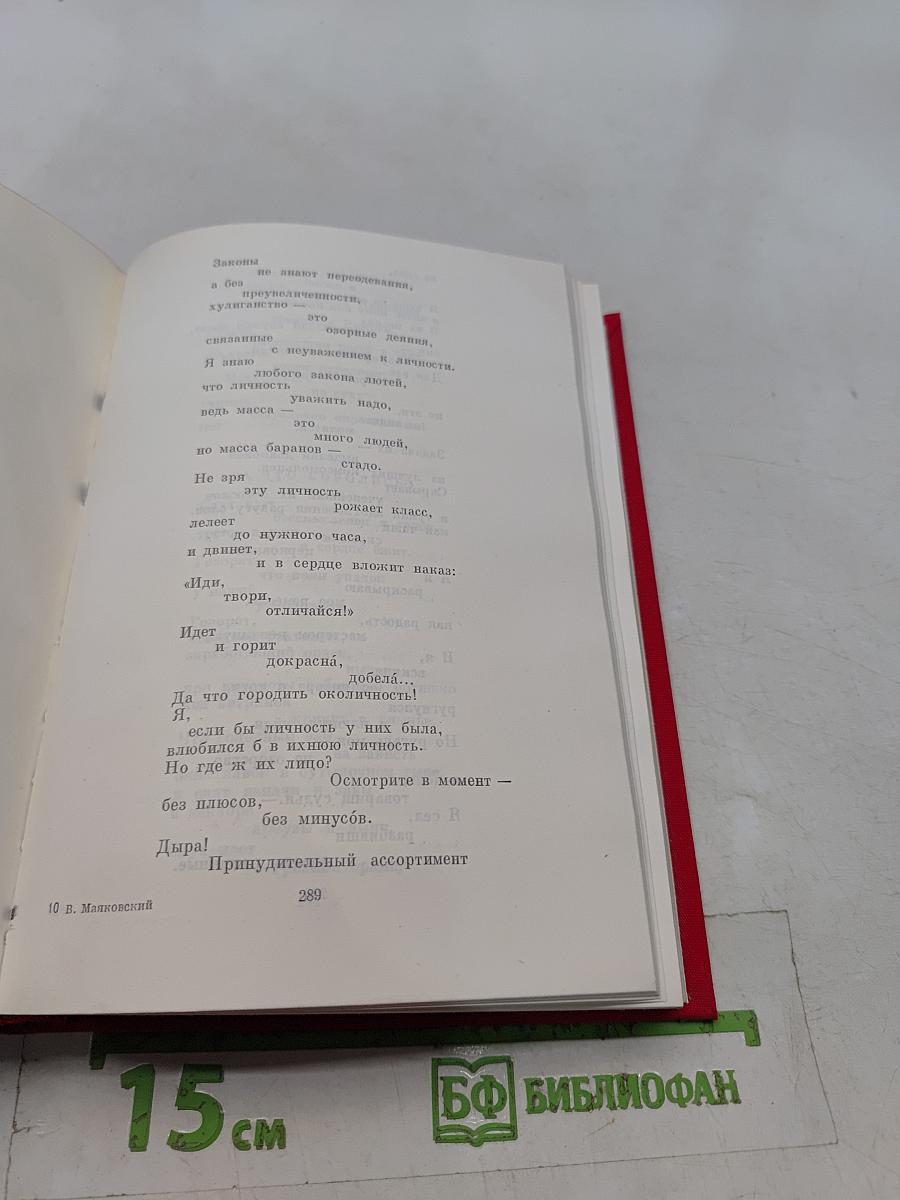 Законы
не знают переодевания,
а без
преувеличенности,
хулиганство —
это
озорные деяния,
связанные
с неуважением к личности.
Я знаю
любого закона лютей,
что личность
уважить надо,
ведь масса —
это
много людей,
но масса баранов —
стадо.
Не зря
эту личность
рожает класс,
лелеет
до нужного часа,
и двинет,
и в сердце вложит наказ:
«Иди,
твори,
отличайся!»
Идет
и горит
докрасна́,
добела́...
Да что городить околичность!
Я,
если бы личность у них была,
влюбился б в ихнюю личность.
Но где ж их лицо?
Осмотрите в момент —
без плюсов,
без минусо́в.
Дыра!
Принудительный ассортимент
10 В. Маяковский
289
15 см
БФ БИБЛИОФАН